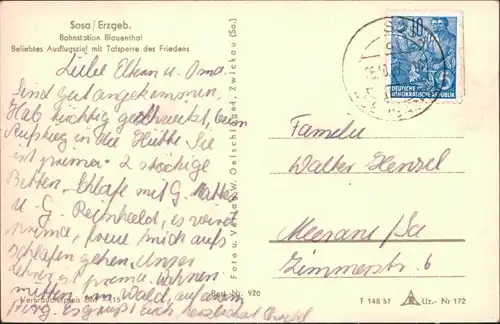 Sosa/Erzgeb.
Bahnstation Blauenthal
Beliebtes Ausflugsziel mit Talsperre des Friedens
Liebe Eltern u. Oma.
Sind gut angekommen.
Hab tüchtig beim
Aufstieg in die Hütte Sie
ist prima. 2 stöckige
Betten. Schlafe mit G.
u. G. Reinhold, es wird
prima, freue mich aufs
schlafen gehen. Unser
Lehrer ist prima. Wohnen
mitten im Wald, auf einem
Berg. Es grüsst Euch herzlichst
Verbraucherpreis DM
Best.-Nr. 920
Foto u. Verlag W. Oelschlägel, Zwickau (Sa.)
10
DEUTSCHE
DEMOKRATISCHE REPUBLIK
SOSA
Familie
Walter Henzel
Meerane/Sa
Zimmerstr. 6
T 148 57
Liz.-Nr 172